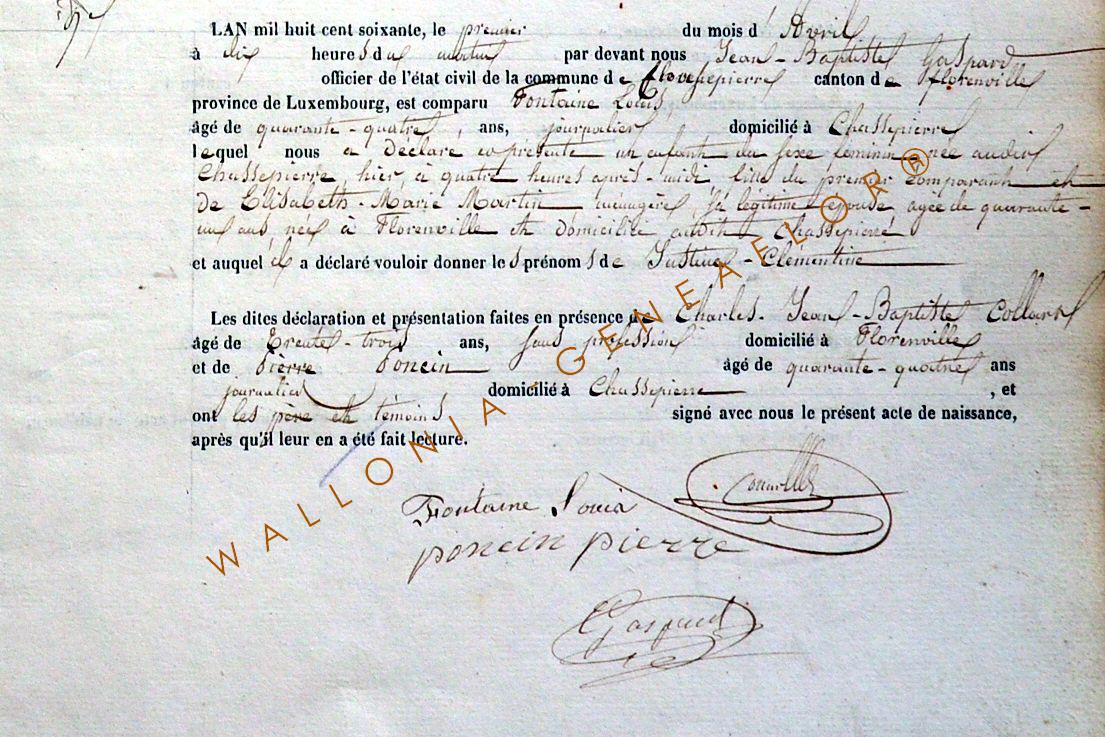 LAN mil huit cent soixante, le premier du mois d Avril
à dix heures du matin par devant nous Jean-Baptiste Gaspard
officier de l'état civil de la commune de canton de Florenville
province de Luxembourg, est comparu Fontaine Louis,
âgé de quarante-quatre, ans, journalier domicilié à Chassepierre
lequel nous a Déclaré et présenté un enfant du sexe féminin née audit
Chassepierre, hier, à quatre heures après-midi fille du premier comparant et
de Elisabeth-Marie Martin ménagère, sa légitime épouse agée de quarante-
un ans née à Florenville et domiciliée audit Chassepierre
et auquel il a déclaré vouloir donner les prénoms de Justine-Clémentine
Les dites déclaration et présentation faites en présence de Charles-Jean-Baptiste Collard
âgé de Trente-trois ans, sans profession domicilié à Florenville
et de Pierre Poncin âgé de quarante-quatre ans
journalier domicilié à Chassepierre, et
ont les père et témoins signé avec nous le présent acte de naissance,
après qu'il leur en a été fait lecture.
Fontaine Louis
poncin pierre
Gaspard
WALLONIA-GENEALOR®